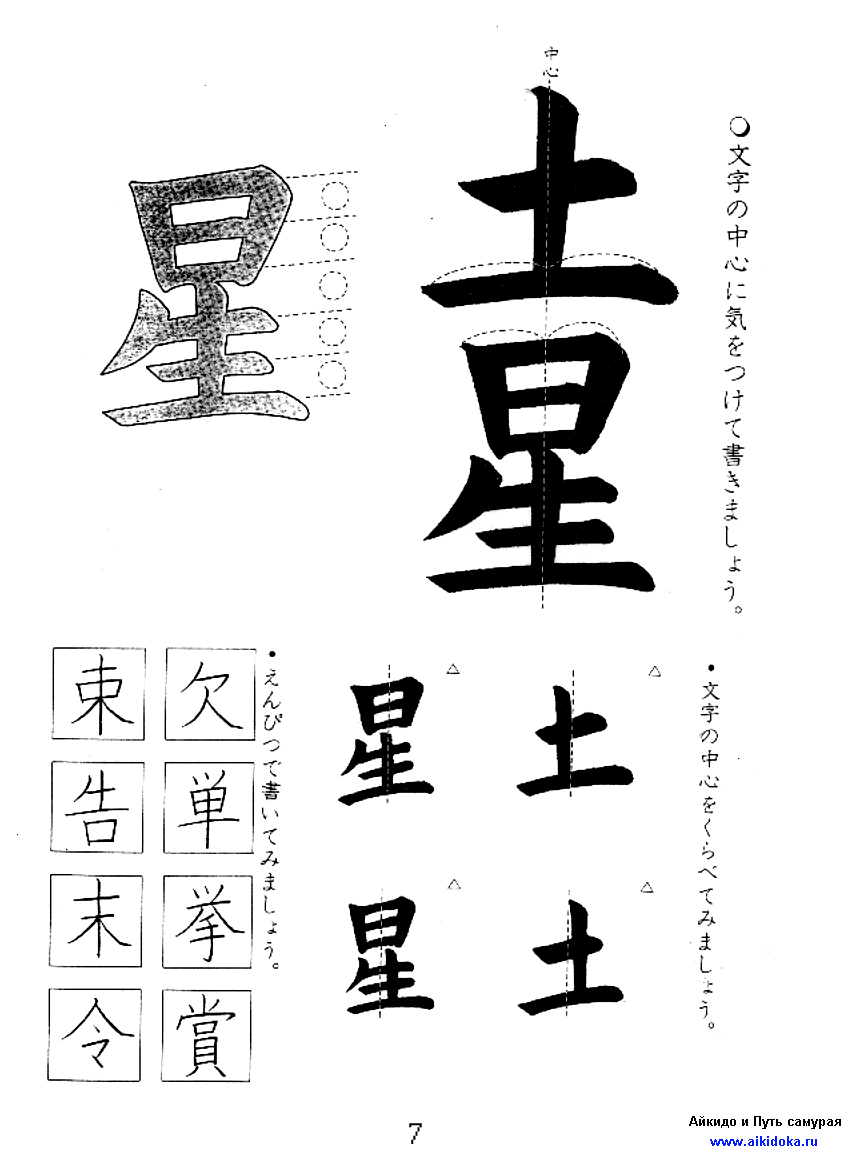 ○文字の中心に気をつけて書きましょう。
中心
土星
星
・文字の中心をくらべてみましょう。
△
土
△
土
△
星
△
星
・えんぴつで書いてみましょう。
欠
単
挙
賞
束
告
末
令
7
Айкидо и Путь самурая
www.aikidoka.ru